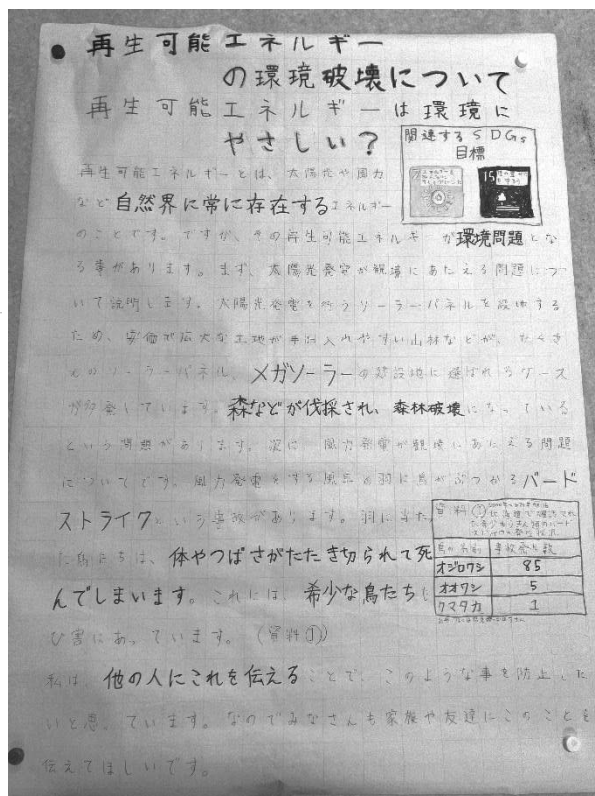 再生可能エネルギー
の環境破壊について
再生可能エネルギーは環境に
やさしい？
関連するSDGs
目標
7
15
再生可能エネルギーとは、太陽光や風力
など自然界に常に存在するエネルギー
のことです。ですが、その再生可能エネルギーが環境問題とな
る事があります。まず、太陽光発電が環境にあたえる問題につ
いて説明します。太陽光発電を行うソーラーパネルを設置する
ため、安価で広大な土地が手に入りやすい山林などが、たくさ
んのソーラーパネル、メガソーラーの建設地に選ばれるケース
が多発しています。森などが伐採され、森林破壊になっている
という問題があります。次に、風力発電が環境にあたえる問題
についてです。風力発電をする風车の羽に鳥がぶつかるバード
ストライクという事故があります。羽に当たっ
た鳥たちは、体やつばさがたたき切られて死
んでしまいます。これには、希少な鳥たちも
ひ害にあっています。（資料①）
資料①
鳥の名前 事故発生数
オジロワシ 85
オオワシ 5
クマタカ 1
私は、他の人にこれを伝えることで、このような事を防止した
いと思っています。なのでみなさんも家族や友達にこのことを
伝えてほしいです。